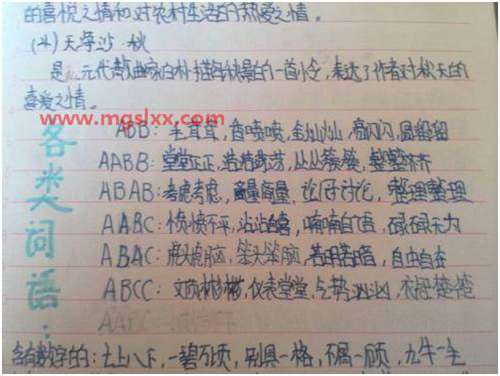 的喜悦之情和对农村生活的热爱之情。
(4)天净沙·秋
是元代散曲家白朴描写秋景的一首小令,表达了作者对秋天的
喜爱之情。
www.mgslxx.com
各类词语:
ABB:毛茸茸,香喷喷,金灿灿,亮闪闪,圆溜溜
AABB:堂堂正正,浩浩荡荡,丛丛簇簇,整整齐齐
ABAB:考虑考虑,商量商量,讨论讨论,整理整理
AABC:愤愤不平,沾沾自喜,喃喃自语,碌碌无为
ABAC:虎头虎脑,笨头笨脑,若明若暗,自由自在
ABCC:文质彬彬,仪表堂堂,气势汹汹,衣冠楚楚
AABC
含有数字的:七上八下,一碧万顷,别具一格,不屑一顾,九牛一毛